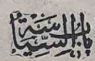 باب السياسة